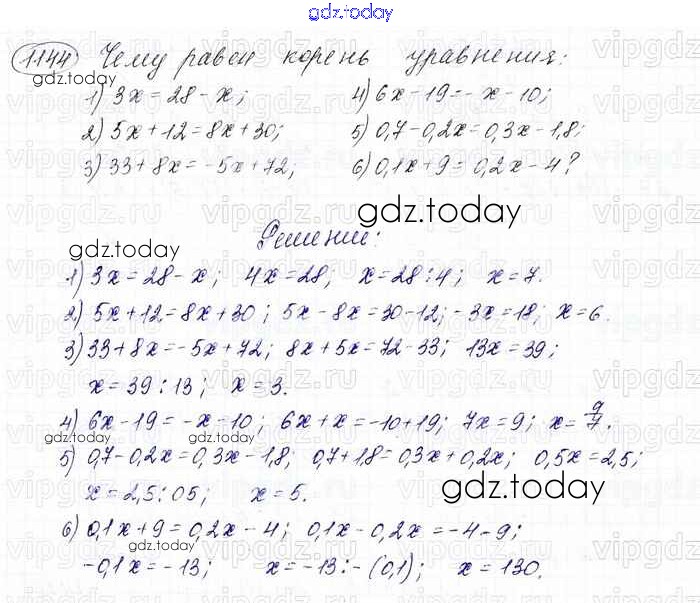 gdz.today
1144 Чему равен корень уравнения:
gdz.today
1) 3x=28-x; 4) 6x=19=-x-10;
2) 5x+12=8x+30; 5) 0,7-0,2x=0,3x-1,8;
3) 33+8x=-5x+72; 6) 0,1x+9=0,2x-4?
gdz.today
Решение:
gdz.today
1) 3x=28-x; 4x=28; x=28:4; x=7.
2) 5x+12=8x+30; 5x-8x=30-12; -3x=18; x=6.
3) 33+8x=-5x+72; 8x+5x=72-33; 13x=39;
x=39:13; x=3.
gdz.today
4) 6x-19=-x-10; 6x+x=-10+19; 7x=9; x=9/7.
5) 0,7-0,2x=0,3x-1,8; 0,7+1,8=0,3x+0,2x; 0,5x=2,5;
x=2,5:05; x=5.
gdz.today
6) 0,1x+9=0,2x-4; 0,1x-0,2x=-4-9;
gdz.today
-0,1x=-13; x=-13:-(0,1); x=130.